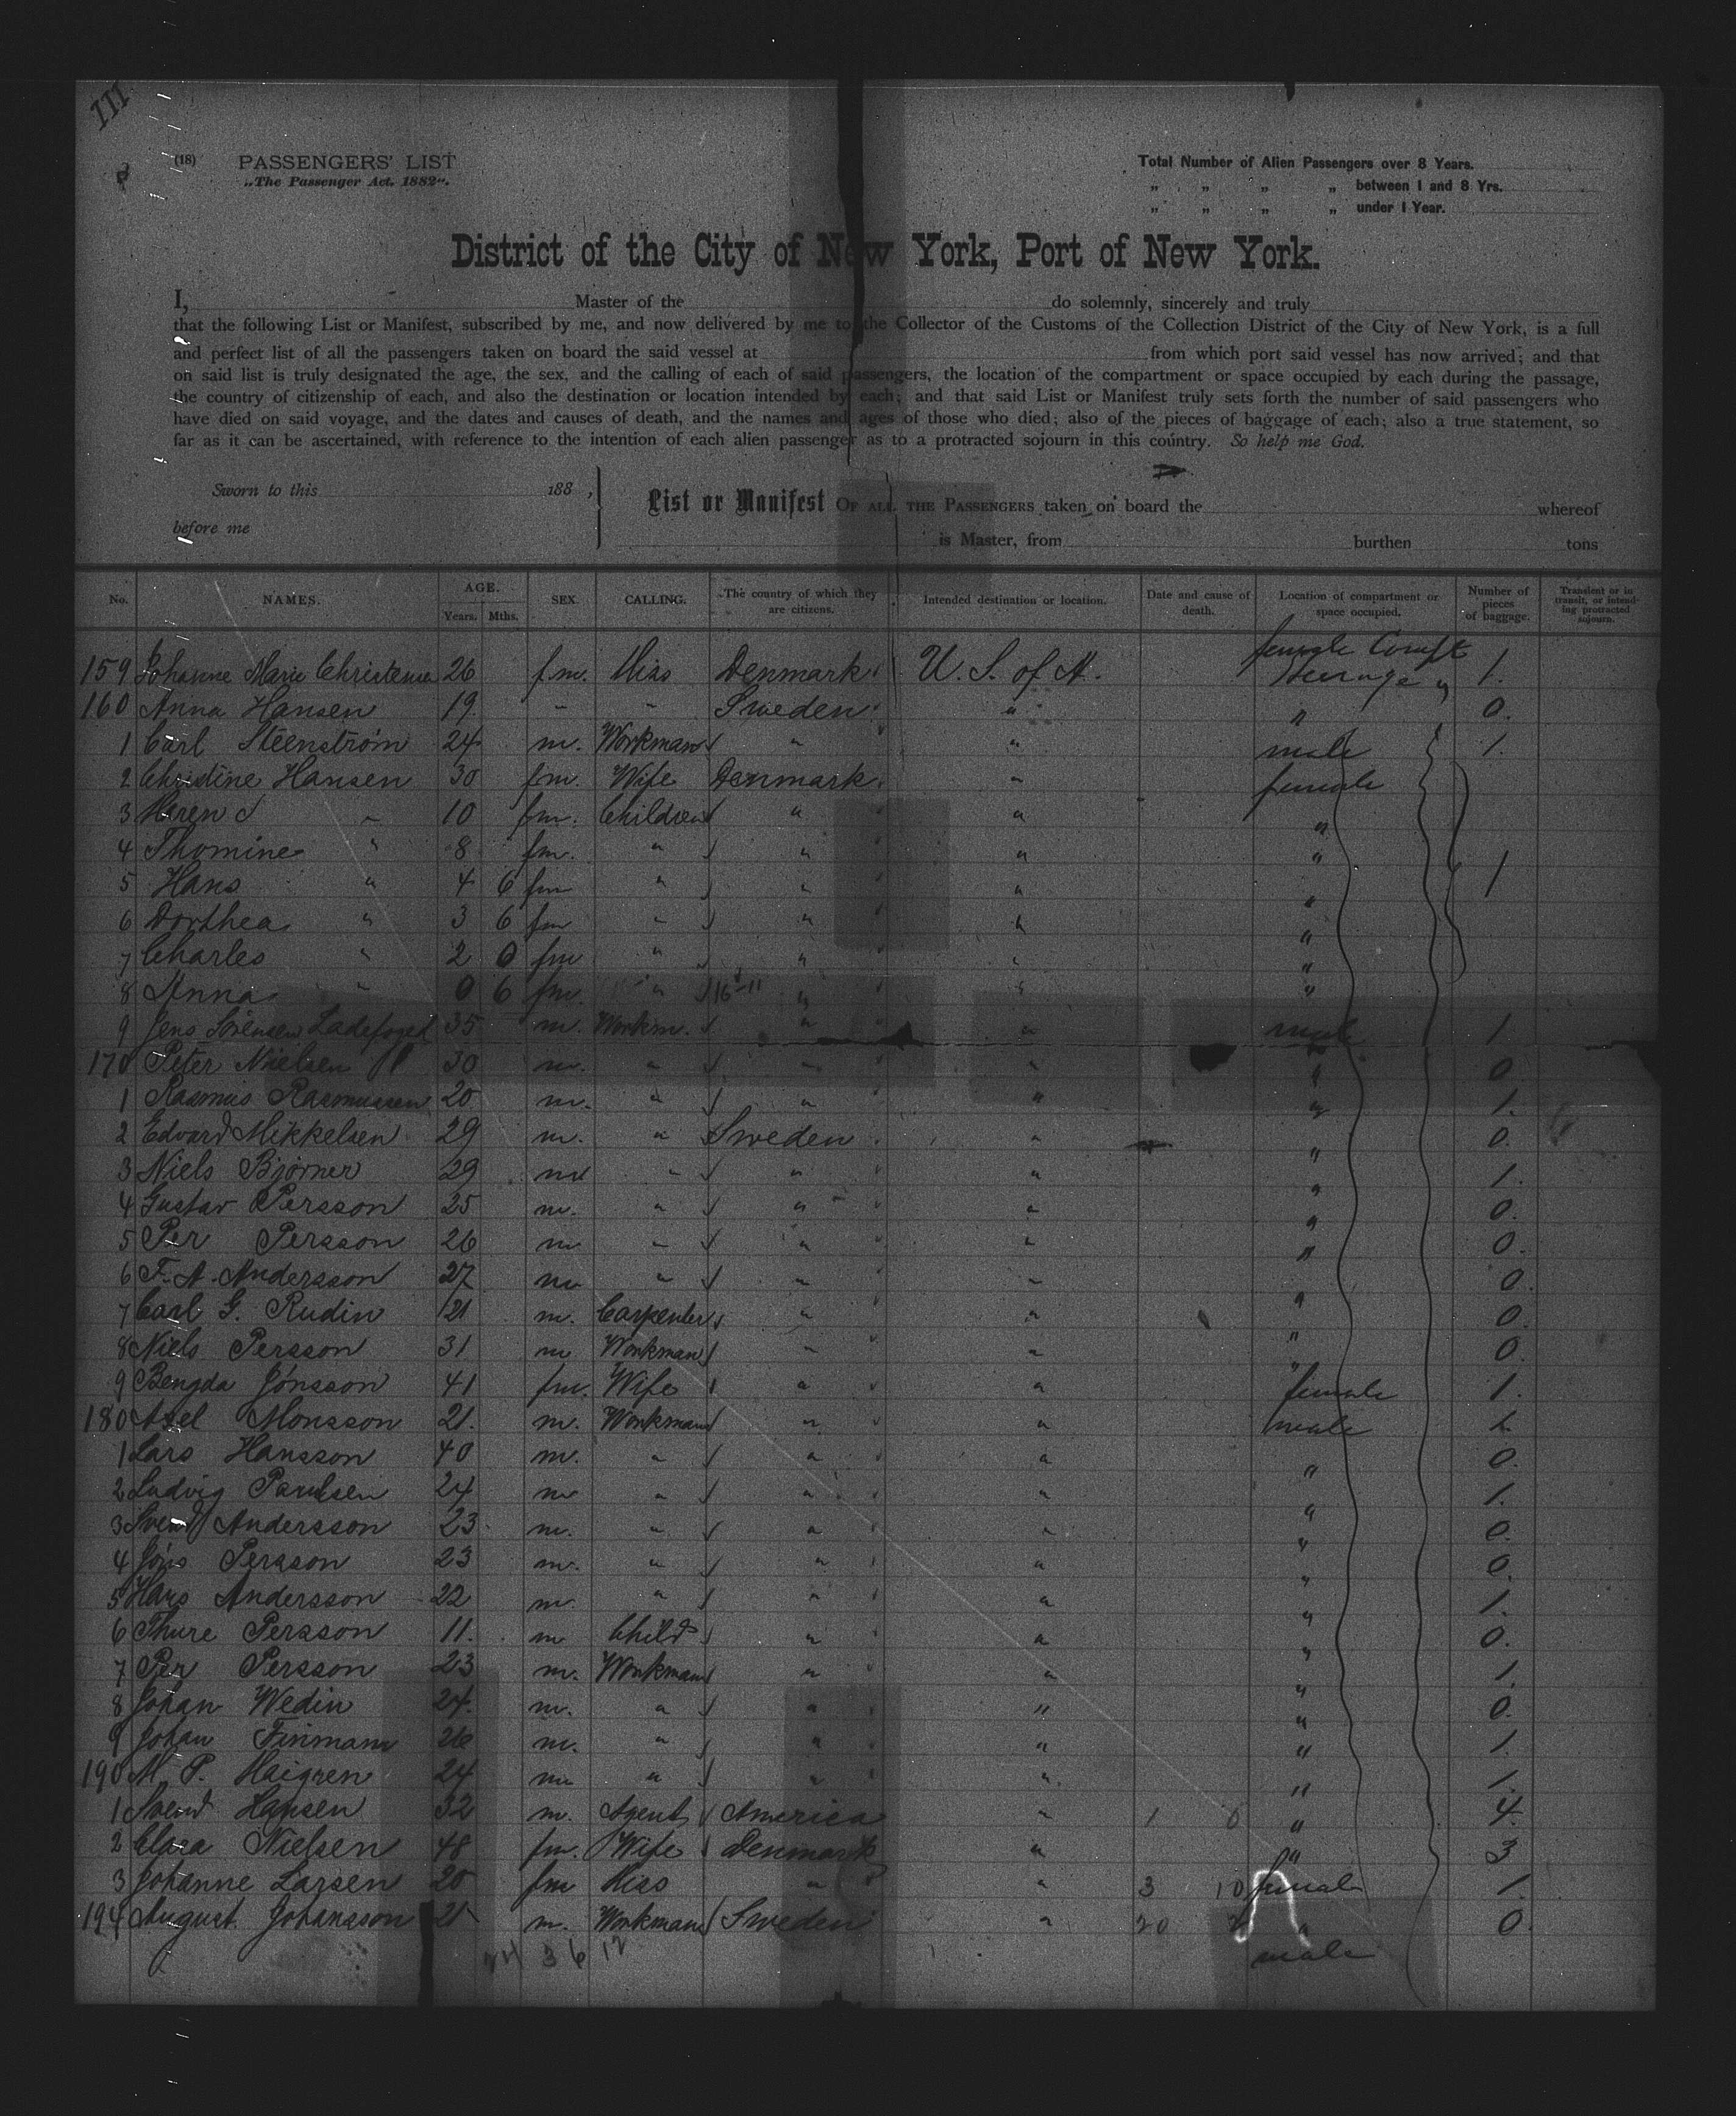 III
(18) PASSENGERS' LIST
„The Passenger Act. 1882".
Total Number of Alien Passengers over 8 Years.
„ „ „ „ between 1 and 8 Yrs.
„ „ „ „ under 1 Year.
District of the City of New York, Port of New York.
I, Master of the do solemnly, sincerely and truly
that the following List or Manifest, subscribed by me, and now delivered by me to the Collector of the Customs of the Collection District of the City of New York, is a full
and perfect list of all the passengers taken on board the said vessel at from which port said vessel has now arrived; and that
on said list is truly designated the age, the sex, and the calling of each of said passengers, the location of the compartment or space occupied by each during the passage,
the country of citizenship of each, and also the destination or location intended by each; and that said List or Manifest truly sets forth the number of said passengers who
have died on said voyage, and the dates and causes of death, and the names and ages of those who died; also of the pieces of baggage of each; also a true statement, so
far as it can be ascertained, with reference to the intention of each alien passenger as to a protracted sojourn in this country. So help me God.
Sworn to this 188 ,
before me
List or Manifest OF ALL THE PASSENGERS taken on board the whereof
is Master, from burthen tons
No. NAMES. AGE. Years. Mths. SEX. CALLING. The country of which they are citizens. Intended destination or location. Date and cause of death. Location of compartment or space occupied. Number of pieces of baggage. Transient or in transit, or intending protracted sojourn.
159 Johanne Marie Christensen 26 fm. Miss Denmark U. S. of A. female Compt Steerage 1.
160 Anna Hansen 19 " " Sweden " " 0.
1 Carl Steenström 24 m. Workman " " male 1.
2 Christine Hansen 30 fm. Wife Denmark " female
3 Maren " 10 fm. Children " " "
4 Thomine " 8 fm. " " " " 1
5 Hans " 4 6 fm " " " "
6 Dorthea " 3 6 fm " " " "
7 Charles " 2 0 fm " " " "
8 Anna " 0 6 fm. " " " "
9 Jens Sörensen Ladefoged 35 m. Workm. " " male 1.
170 Peter Nielsen 30 m. " " " " 0
1 Rasmus Rasmussen 20 m. " " " " 1.
2 Edvard Mikkelsen 29 m. " Sweden " " 0.
3 Niels Bjørner 29 m " " " " 1.
4 Gustav Persson 25 m. " " " " 0.
5 Per Persson 26 m " " " " 0.
6 F. A. Andersson 27 m " " " " 0.
7 Carl G. Rudin 21 m. Carpenter " " " 0.
8 Niels Persson 31 m Workman " " " 0.
9 Bengda Jönsson 41 fm. Wife " " female 1.
180 Axel Monsson 21. m. Workman " " male
1 Lars Hansson 40 m. " " " " 0.
2 Ludvig Paulsen 24 m " " " " 1.
3 Svend Andersson 23 m. " " " " 0.
4 Jöns Persson 23 m. " " " " 0.
5 Hans Andersson 22 m. " " " " 1.
6 Thure Persson 11. m Child " " " 0.
7 Per Persson 23 m. Workman " " " 1.
8 Johan Wedin 24. m. " " " " 0.
9 Johan Finmann 26 m. " " " " 1.
190 M. P. Haigren 24 m " " " " 1.
1 Svend Hansen 32 m. Agent America " 1 6 " 4.
2 Clara Nielsen 48 fm. Wife Denmark " " 3
3 Johanne Larsen 20 fm Miss " " 3 10 female 1.
194 August Johansson 21 m. Workman Sweden " 20 " 0.
male